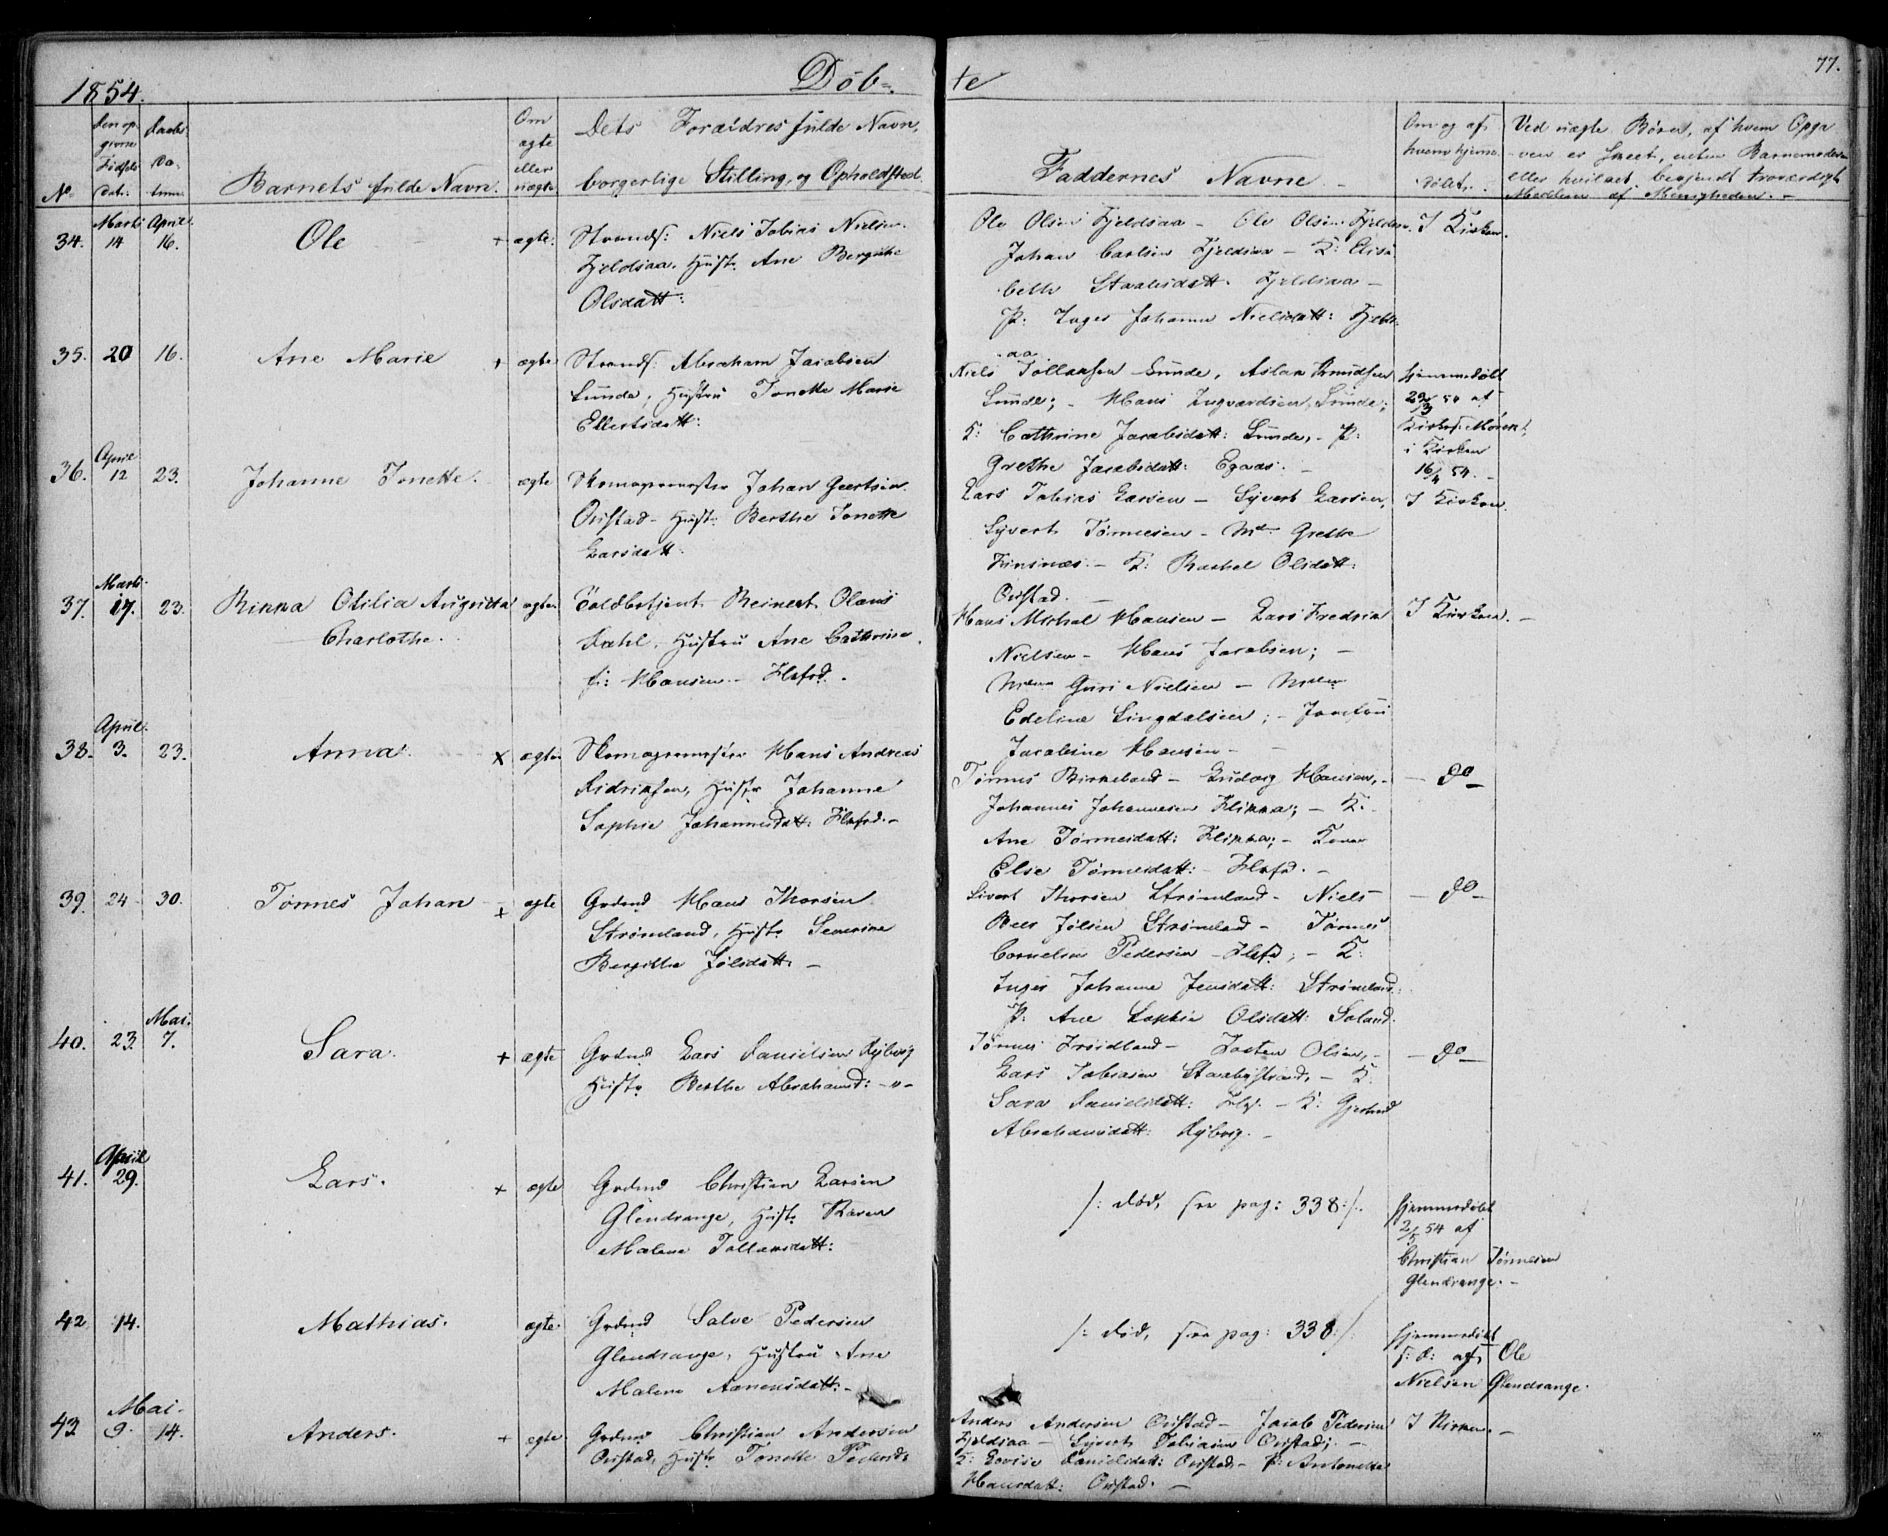 1854.
Döb-
te
77.
No
Den op-
givne
Fødsels
Dat:
Daabs
Da-
tum.
Barnets fulde Navn.
Om
ægte
eller
uægte
Dets Forældres fulde Navn,
borgerlige Stilling, og Opholdsted
Faddernes Navne
Om og af
hvem hjemme-
døbt.
Ved uægte Børn, af hvem Opga-
ven er skeet, enten Barnemoderen
eller hvilket bekjendt troværdigt
Medlem af Menigheden.
34.
Marti
14
April.
16.
Ole
+ ægte:
Strands: Niels Tobias Nielsen
Fjeldsaa. Hustr. Ane Bergithe
Olsdatt:
Ole Olsen Fjeldsaa - Ole Olsen Fjeldsaa
Johan Carlsen Fjeldsaa - K: Elisa-
beth Staalesdatt. Fjeldsaa -
P: Inger Johanne Nielsdatt: Fjelds-
aa.
I Kirken.
35.
20
16.
Ane Marie
+ ægte
Strands: Abraham Jacobsen
Lunde, Hustru Tonette Marie
Ellertsdatt:
Niels Tollaksen Lunde, Aslak Knudsen
Lunde; - Hans Ingvardsen, Lunde;
K: Cathrine Jacobsdatt: Lunde, - P:
Grethe Jacobsdatt: Egaas. -
hjemmedøbt
29/3 54 af
Kirkes.
i Kirken
16/4 54. -
36.
April
12
23.
Johanne Tonette.
ægte
Skomagermester Johan Geertsen
Ovistad - Hustr. Berthe Tonette
Larsdatt:
Lars Tobias Larsen - Syvert Larsen,
Syvert Tønnesen - Grethe
- K: Rachel Olsdatt:
Ovistad. -
I Kirken.
37.
Marti
17.
23.
Rikka Otilia Augusta
Charlothe.
ægte
Toldbetjent Reinert Olaus
Dahl, Hustru Ane Cathrine
f: Hansen - Flekfd.
Hans Michal Hansen - Lars Fredrik
Nielsen - Hans Jacobsen; -
Guri Nielsen -
Edeline Lingdalsen; - Jomfru
Jacobine Hansen -
I Kirken. -
38.
April
3.
23.
Anna.
x ægte
Skomagermester Hans Andreas
Didriksen, Hustr. Johanne
Sophie Johannesdatt: Flekfd. -
Tønnes Birkeland - Ludvig Hansen, -
Johannes Johannesen Flikka; - K.
Ane Tønnesdatt: Flikka; - Kone
Else Tønnesdatt: - Flekfd. -
- do -
39.
24
30.
Tønnes Johan
+ ægte
Grdmd Hans Thorsen
Strømland, Hustr. Severine
Bergitha Jølsdatt: -
Sivert Thorsen Strømland - Niels
Jølsen Strømland - Tønnes
Cornelius Pedersen - Flekfd; - K.
Inger Johanne Jensdatt: Strømland
P: Ane Sophie Olsdatt: Soland.
- do -
40.
23.
Mai.
7.
Sara.
+ ægte
Grdmd Lars Danielsen Rybvig
Hustr. Berthe Abrahamsd: -"-
Tønnes Frøidland - Josten Olsen, -
Lars Tobiasen - K.
Sara Danielsdatt: - K: Gjertrud
Abrahamsdatt: Rybvig. -
- do -
41.
April
29.
Lars.
+ ægte
Grdmd Christian Larsen
Glendrange, Hustr. Karen
Malene Tollaksdatt:
/: død, see pag: 338:/.
hjemmedøbt
2/5 54 af
Christian Tønnesen
Glendrange. -
42
14.
Mathias.
ægte.
Grdmd Salve Pedersen
Glendrange, Hustru Ane
Malene Aanensdatt: -
/: død, see pag: 338:/.
hjemmedøbt
s: d: af Ole
Nielsen Glendrange.
43
Mai.
9.
14.
Anders.
+ ægte
Grdmd Christian Andersen
Ovistad, Hustr. Tonette Pedersd:
Anders Andersen Ovistad - Jacob Pedersen
Fjeldsaa - Syvert Tobiasen Ovistad; -
K: Lovise Danielsdatt: Ovistad - P: Antonette
Hansdatt: Ovistad. -
I Kirken. -